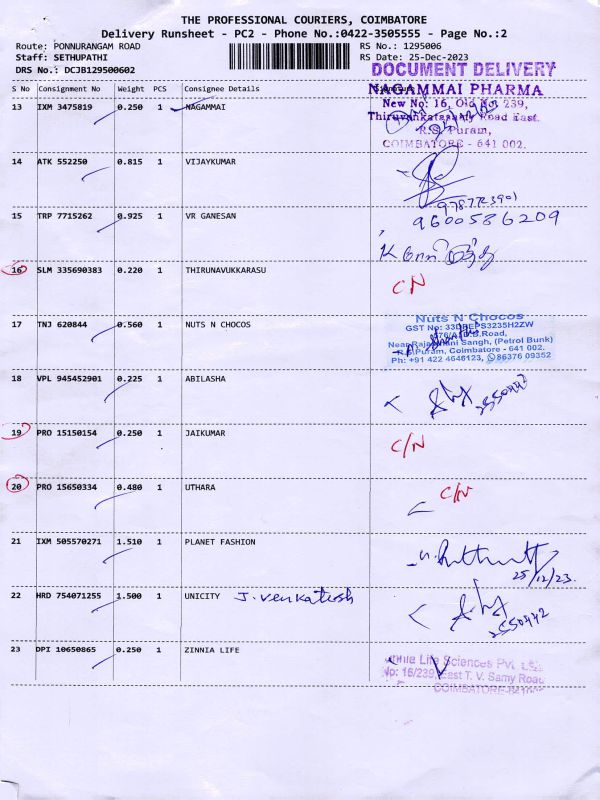 THE PROFESSIONAL COURIERS, COIMBATORE
Delivery Runsheet - PC2 - Phone No.:0422-3505555 - Page No.:2
Route: PONNURANGAM ROAD
Staff: SETHUPATHI
DRS No.: DCJB129500602
RS No.: 1295006
RS Date: 25-Dec-2023
DOCUMENT DELIVERY
S No Consignment No Weight PCS Consignee Details
13 IXM 3475819 0.250 1 NAGAMMAI
NAGAMMAI PHARMA
New No: 16, Old No: 239,
Thiruvenkatasamy Road East.
R.S. Puram,
COIMBATORE - 641 002.
14 ATK 552250 0.815 1 VIJAYKUMAR
9787723901
15 TRP 7715262 0.925 1 VR GANESAN
9600586209
16 SLM 335690383 0.220 1 THIRUNAVUKKARASU
C/N
17 TNJ 620844 0.560 1 NUTS N CHOCOS
Nuts N Chocos
GST No:
D.B.Road,
Sangh, (Petrol Bunk)
R.S.Puram, Coimbatore - 641 002.
Ph: +91 422 4646123, 86376 09352
18 VPL 945452901 0.225 1 ABILASHA
2550442
19 PRO 15150154 0.250 1 JAIKUMAR
C/N
20 PRO 15650334 0.480 1 UTHARA
C/N
21 IXM 505570271 1.510 1 PLANET FASHION
25/12/23.
22 HRD 754071255 1.500 1 UNICITY J. Venkatesh
2550442
23 DPI 10650865 0.250 1 ZINNIA LIFE
Life Sciences Pvt. Ltd.
No: 16/239, East T. V. Samy Road